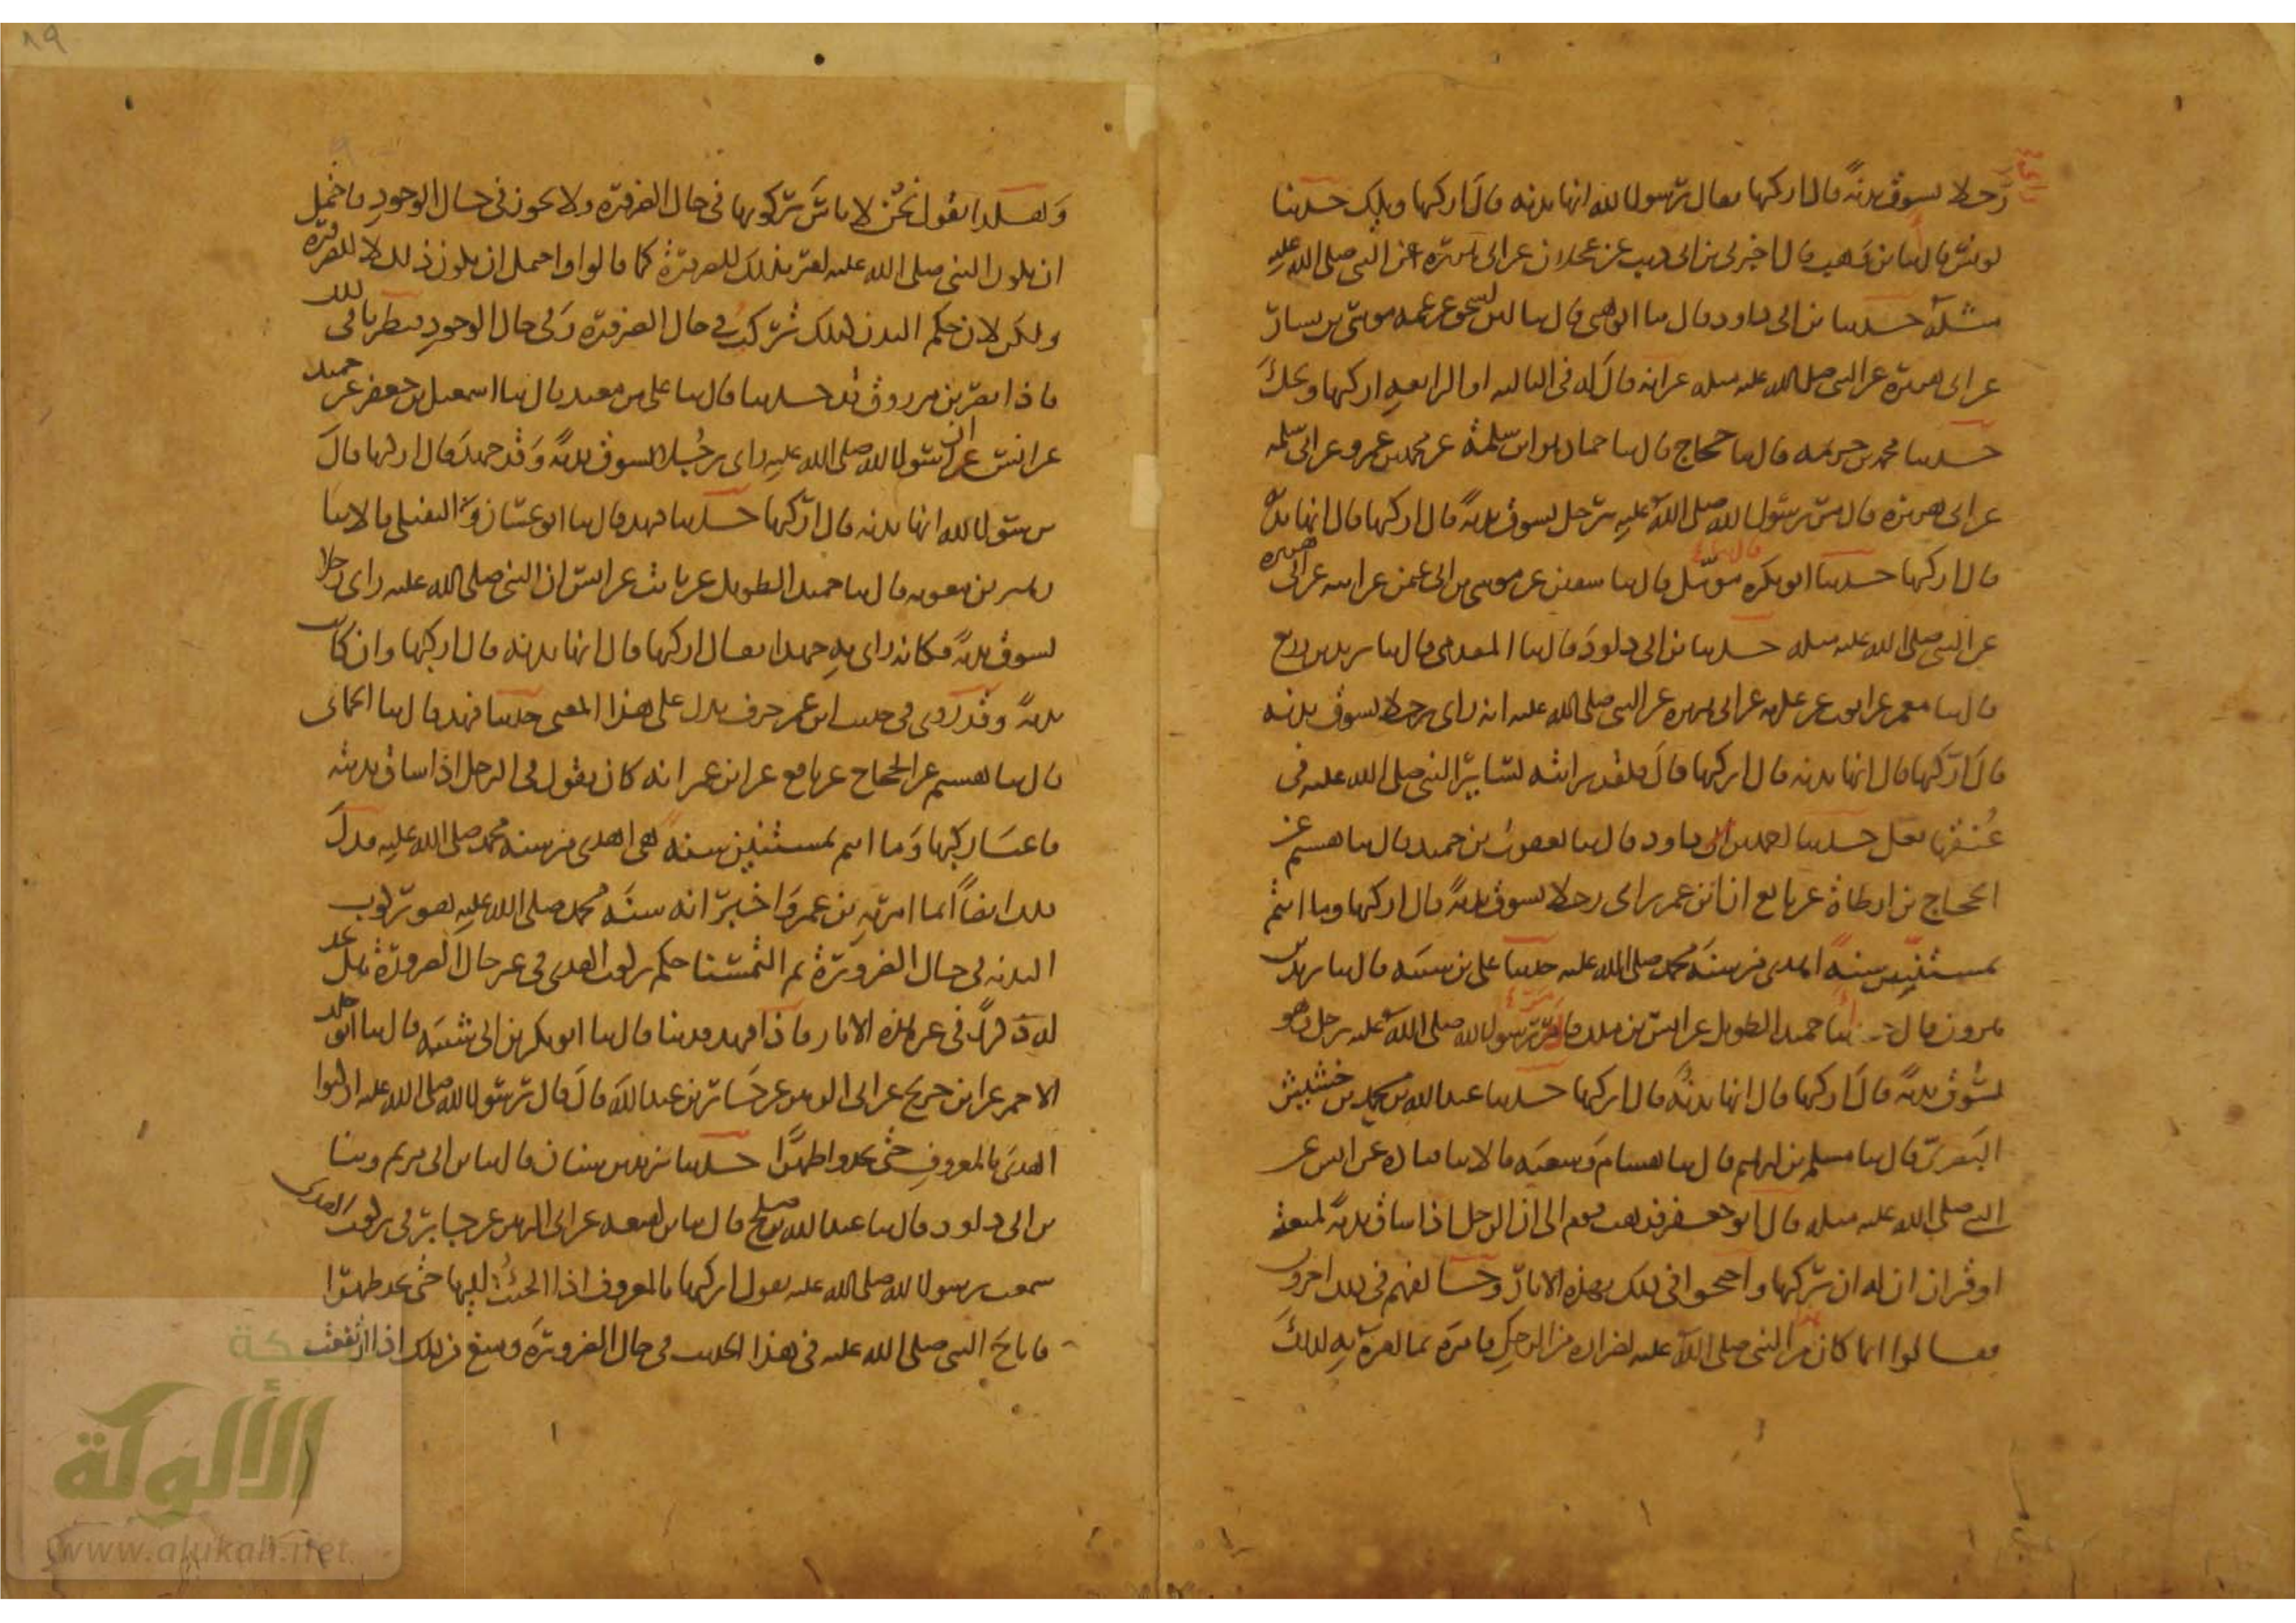 رجلا يسوق بدنة قال اركبها فقال يا رسول الله انها بدنة قال اركبها ويلك حدثنا
يونس قال ثنا بن وهب قال اخبرني بن ابي ذيب عن عجلان عن ابي هريرة عن النبي صلى الله عليه
مثله حدثنا بن ابي داود قال ثنا الوهبي قال ثنا ابن اسحق عن عمه موسى بن يسار
عن ابي هريرة عن النبي صلى الله عليه مثله غير انه قال له في الثالثة او الرابعة اركبها ويحك
حدثنا محمد بن خزيمة قال ثنا حجاج قال ثنا حماد هو ابن سلمة عن محمد بن عمرو عن ابي سلمة
عن ابي هريرة قال مر رسول الله صلى الله عليه برجل يسوق بدنة قال اركبها قال انها بدنة
قال اركبها حدثنا ابو بكرة قال ثنا مومل قال ثنا سفين عن موسى بن ابي عثمن عن ابيه عن ابي هريرة
عن النبي صلى الله عليه مثله حدثنا بن ابي داود قال ثنا المقدمي قال ثنا يزيد بن زريع
قال ثنا معمر عن ايوب عن عكرمة عن ابي هريرة عن النبي صلى الله عليه انه راى رجلا يسوق بدنة
قال اركبها قال انها بدنة قال اركبها قال فلقد رايته يساير النبي صلى الله عليه في
عنقها نعل حدثنا احمد بن داود قال ثنا يعقوب بن حميد قال ثنا هشيم عن
الحجاج بن ارطاة عن نافع ان ابن عمر راى رجلا يسوق بدنة قال اركبها وما انتم
بمستنين سنة اهدى من سنة محمد صلى الله عليه حدثنا علي بن شيبة قال ثنا يزيد بن
هرون قال انا حميد الطويل عن انس بن ملك قال مر رسول الله صلى الله عليه برجل وهو
يسوق بدنة قال اركبها قال انها بدنة قال اركبها حدثنا عبد الله بن محمد بن خشيش
البصري قال ثنا مسلم بن ابرهيم قال ثنا هشام وشعبة قالا ثنا قتادة عن انس عن
النبي صلى الله عليه مثله قال ابو جعفر فذهب قوم الى ان الرجل اذا ساق بدنة لمتعة
او قران ان له ان يركبها واحتجوا في ذلك بهذه الاثار وخالفهم في ذلك اخرون
فقالوا انما كان هذا من النبي صلى الله عليه لضر راه من الرجل فامره بما امره به لذلك
وهكذا نقول نحن لا باس بركوبها في حال الضرورة ولا يجوز في حال الوجود فاحتمل
ان يكون النبي صلى الله عليه امر بذلك للضرورة كما قالوا واحتمل ان يكون ذلك لا للضرورة
ولكن لان حكم البدن كذلك تركب في حال الضرورة وفي حال الوجود فنظرنا في ذلك
فاذا نصر بن مرزوق قد حدثنا قال ثنا علي بن معبد قال ثنا اسمعيل بن جعفر عن حميد
عن انس ان رسول الله صلى الله عليه راى رجلا يسوق بدنة وقد جهد قال اركبها قال
يا رسول الله انها بدنة قال اركبها حدثنا فهد قال ثنا ابو غسان والنفيلي قالا ثنا
زهير بن معوية قال ثنا حميد الطويل عن ثابت عن انس ان النبي صلى الله عليه راى رجلا
يسوق بدنة فكانه راى به جهدا فقال اركبها قال انها بدنة قال اركبها وان كانت
بدنة وقد روي في حديث ابن عمر حرف يدل على هذا المعنى حدثنا فهد قال ثنا الحماني
قال ثنا هشيم عن الحجاج عن نافع عن ابن عمر انه كان يقول في الرجل اذا ساق بدنته
فاعيا ركبها وما انتم بمستنين سنة هي اهدى من سنة محمد صلى الله عليه فدل
ذلك ايضا انما امر به بن عمر واخبر انه سنة محمد صلى الله عليه هو ركوب
البدنة في حال الضرورة ثم التمسنا حكم ركوب الهدى في غير حال الضرورة هل نجد
له ذكرا في غير هذه الاثار فاذا فهد قد حدثنا قال ثنا ابو بكر بن ابي شيبة قال ثنا ابو خلد
الاحمر عن ابن جريج عن ابي الزبير عن جابر بن عبد الله قال قال رسول الله صلى الله عليه اركبوا
الهدى بالمعروف حتى تجدوا ظهرا حدثنا يزيد بن سنان قال ثنا بن ابي مريم وحدثنا
بن ابي داود قال ثنا عبد الله بن صلح قال ثنا بن لهيعة عن ابي الزبير عن جابر في ركوب الهدى
سمعت رسول الله صلى الله عليه يقول اركبها بالمعروف اذا الجئت اليها حتى تجد ظهرا
فاباح النبي صلى الله عليه في هذا الحديث في حال الضرورة ومنع من ذلك اذا ارتفعت
شبكة
الألوكة
www.alukah.net